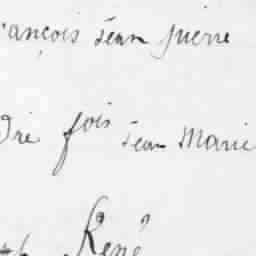 rançois jean pierre
fois jean Marie
René